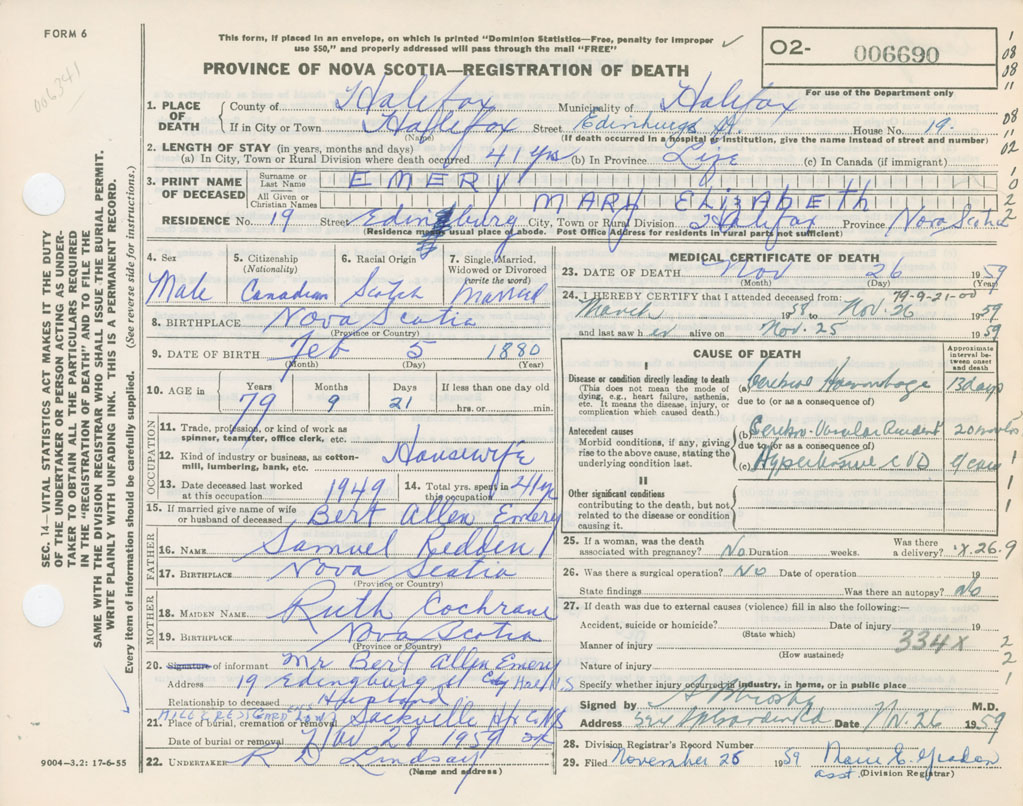 FORM 6
This form, if placed in an envelope, on which is printed "Dominion Statistics—Free, penalty for improper
use $50," and properly addressed will pass through the mail "FREE"
O2- 006690
For use of the Department only
006341
PROVINCE OF NOVA SCOTIA—REGISTRATION OF DEATH
1. PLACE OF DEATH County of Halifax Municipality of Halifax
If in City or Town Halifax Street Edinburgh St. House No. 19.
(Name) (If death occurred in a hospital or institution, give the name instead of street and number)
2. LENGTH OF STAY (in years, months and days)
(a) In City, Town or Rural Division where death occurred 41 yrs (b) In Province Life (c) In Canada (if immigrant)
3. PRINT NAME OF DECEASED Surname or Last Name EMERY
All Given or Christian Names MARY ELIZABETH
RESIDENCE No. 19 Street Edinsburg City, Town or Rural Division Halifax Province Nova Scotia
(Residence means usual place of abode. Post Office Address for residents in rural parts not sufficient)
4. Sex Male
5. Citizenship (Nationality) Canadian
6. Racial Origin Scotch
7. Single, Married, Widowed or Divorced (write the word) Married
8. BIRTHPLACE Nova Scotia
(Province or Country)
9. DATE OF BIRTH Feb 5 1880
(Month) (Day) (Year)
10. AGE in Years Months Days If less than one day old
79 9 21 hrs. or min.
OCCUPATION
11. Trade, profession, or kind of work as spinner, teamster, office clerk, etc.
12. Kind of industry or business, as cotton-mill, lumbering, bank, etc. Housewife
13. Date deceased last worked at this occupation 1949 14. Total yrs. spent in this occupation 41 yr
15. If married give name of wife or husband of deceased Bert Allen Emery
FATHER
16. NAME Samuel Redden
17. BIRTHPLACE Nova Scotia
(Province or Country)
MOTHER
18. MAIDEN NAME Ruth Cochrane
19. BIRTHPLACE Nova Scotia
(Province or Country)
20. Signature of informant Mr Bert Allen Emery
Address 19 Edingburg St City Hal N.S
Relationship to deceased Husband
21. Place of burial, cremation or removal Sackville Hfx Co NS
Date of burial or removal Nov 28 1959
22. UNDERTAKER R D Lindsay
(Name and address)
MEDICAL CERTIFICATE OF DEATH
23. DATE OF DEATH Nov 26 1959
(Month) (Day) (Year)
79-9-21-00
24. I HEREBY CERTIFY that I attended deceased from:
March 1958 to Nov. 26 1959
and last saw her alive on Nov. 25 1959
CAUSE OF DEATH
Approximate interval between onset and death
I
Disease or condition directly leading to death (a) Cerebral Haemorrhage 13 days
(This does not mean the mode of dying, e.g., heart failure, asthenia, etc. It means the disease, injury, or complication which caused death.)
due to (or as a consequence of)
Antecedent causes (b) Cerebro-Vascular Accident 20 months
Morbid conditions, if any, giving rise to the above cause, stating the underlying condition last.
due to (or as a consequence of)
(c) Hypertensive C V D years
II
Other significant conditions contributing to the death, but not related to the disease or condition causing it.
25. If a woman, was the death associated with pregnancy? No Duration weeks. Was there a delivery?
26. Was there a surgical operation? No Date of operation 19
State findings Was there an autopsy? No
27. If death was due to external causes (violence) fill in also the following:—
Accident, suicide or homicide? Date of injury 19
(State which)
Manner of injury 334X
(How sustained)
Nature of injury
Specify whether injury occurred in industry, in home, or in public place
Signed by M.D.
Address Date Nov. 26 1959
28. Division Registrar's Record Number
29. Filed November 26 1959
asst. (Division Registrar)
SEC. 14—VITAL STATISTICS ACT MAKES IT THE DUTY
OF THE UNDERTAKER OR PERSON ACTING AS UNDER-
TAKER TO OBTAIN ALL THE PARTICULARS REQUIRED
IN THE "REGISTRATION OF DEATH" AND TO FILE THE
SAME WITH THE DIVISION REGISTRAR WHO SHALL ISSUE THE BURIAL PERMIT.
WRITE PLAINLY WITH UNFADING INK. THIS IS A PERMANENT RECORD.
Every item of information should be carefully supplied. (See reverse side for instructions.)
9004-3.2: 17-6-55